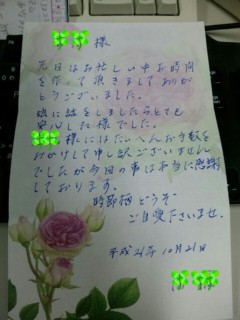 様
先日はお忙しい中お時間
を作って頂きましてありが
とうございました。
娘に話をしましたらとても
安心した様でした。
様にはたいへんお手数を
おかけして申し訳ございません
でしたが今回の事は本当に感謝
しております。
時節柄どうぞ
ご自愛下さいませ。
平成21年10月21日